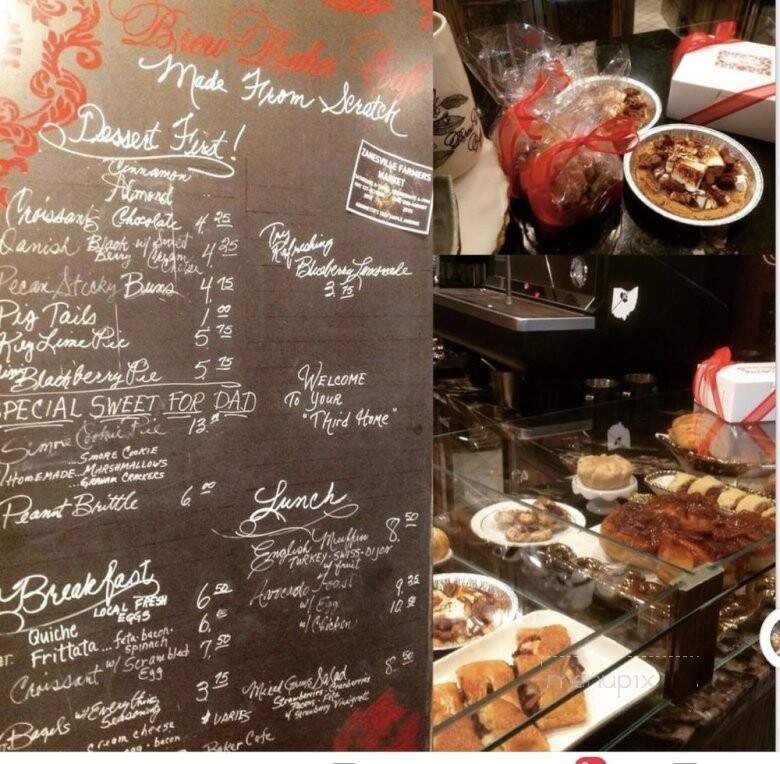 Brew Baker Cafe
Made From Scratch
Dessert First!
Cinnamon
Almond
Croissants Chocolate 4.25
Danish Blackberry w/ Sweet Cream Cheese 4.25
Pecan Sticky Buns 4.75
Pig Tails 1.00
Key Lime Pie 5.75
Blackberry Pie 5.75
SPECIAL SWEET FOR DAD
Smore Cookie Pie 13.
SMORE COOKIE
HOMEMADE MARSHMALLOWS
GRAHAM CRACKERS
Peanut Brittle 6.00
Breakfast
LOCAL FRESH
EGGS
Quiche 6.50
Frittata... feta-bacon-spinach 6.
Croissant w/ Scrambled Egg 7.50
Bagels w/ Everything Seasoning 3.75
cream cheese
egg - bacon
$ VARIES
ZANESVILLE FARMERS
MARKET
Try
Refreshing
Blueberry Lemonade
3.75
WELCOME
TO YOUR
"Third Home"
Lunch
English Muffin 8.50
TURKEY-SWISS-DIJON
w/ fruit
Avocado Toast 9.25
w/ Egg 10.50
w/ Chicken
Mixed Greens Salad 8.50
Strawberries, Cranberries
Pecans - Feta
w/ Strawberry Vinaigrette
Baker Cafe
menupix